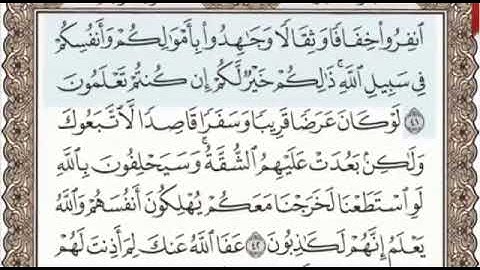 ٱنفِرُوا۟ خِفَافًا وَثِقَالًا وَجَٰهِدُوا۟ بِأَمْوَٰلِكُمْ وَأَنفُسِكُمْ
فِى سَبِيلِ ٱللَّهِ ۚ ذَٰلِكُمْ خَيْرٌ لَّكُمْ إِن كُنتُمْ تَعْلَمُونَ
٤١ لَوْ كَانَ عَرَضًا قَرِيبًا وَسَفَرًا قَاصِدًا لَّٱتَّبَعُوكَ
وَلَٰكِنۢ بَعُدَتْ عَلَيْهِمُ ٱلشُّقَّةُ ۚ وَسَيَحْلِفُونَ بِٱللَّهِ
لَوِ ٱسْتَطَعْنَا لَخَرَجْنَا مَعَكُمْ يُهْلِكُونَ أَنفُسَهُمْ وَٱللَّهُ
يَعْلَمُ إِنَّهُمْ لَكَٰذِبُونَ ٤٢ عَفَا ٱللَّهُ عَنكَ لِمَ أَذِنتَ لَهُمْ